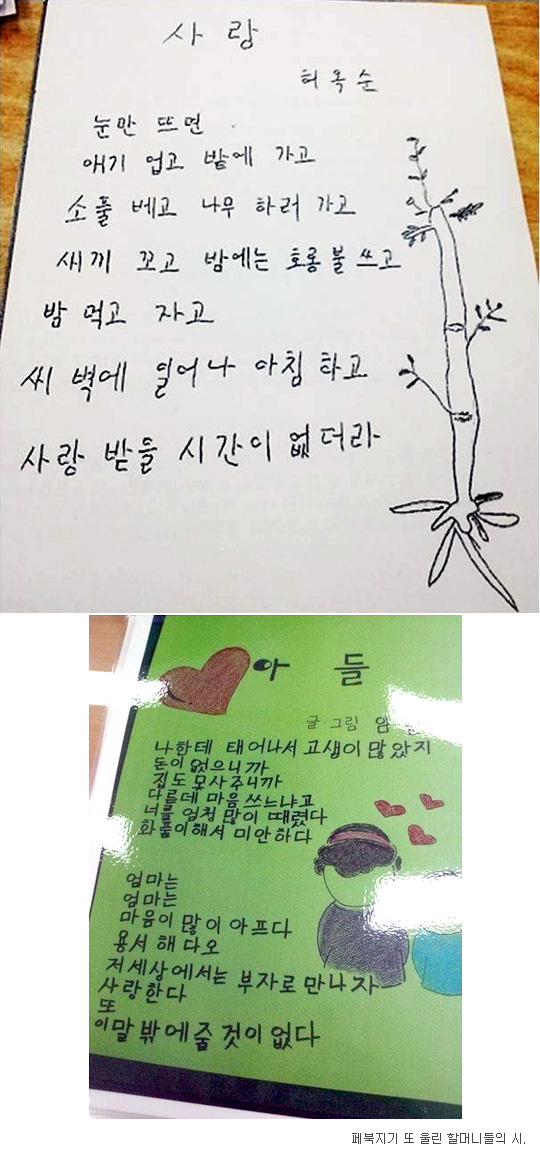 사랑
허옥순
눈만 뜨면
애기 업고 밭에 가고
소풀 베고 나무 하러 가고
새끼 꼬고 밤에는 호롱불 쓰고
밤 먹고 자고
씨 벽에 일어나 아침 하고
사랑 받을 시간이 없더라
아들
글 그림
나한데 태어나서 고생이 많았지
돈이 없으니까
집도 모사주니까
다른데 마음 쓰느냐고
너를 엄청 많이 때렸다
화풀이해서 미안하다
엄마는
엄마는
마음이 많이 아프다
용서 해 다오
저세상에서는 부자로 만나자
사랑한다
또
이말 밖에 줄 것이 없다
페북지기 또 울린 할머니들의 시.